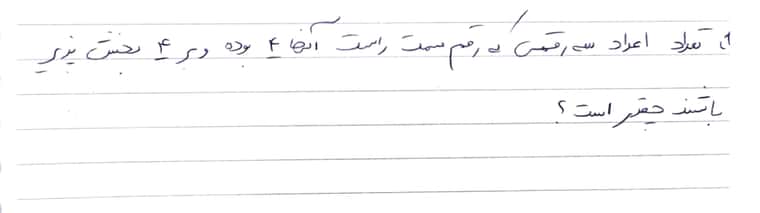 ۱) تعداد اعداد سه رقمی که رقم سمت راست آنها ۴ بوده و بر ۴ بخش پذیر
باشند چقدر است؟